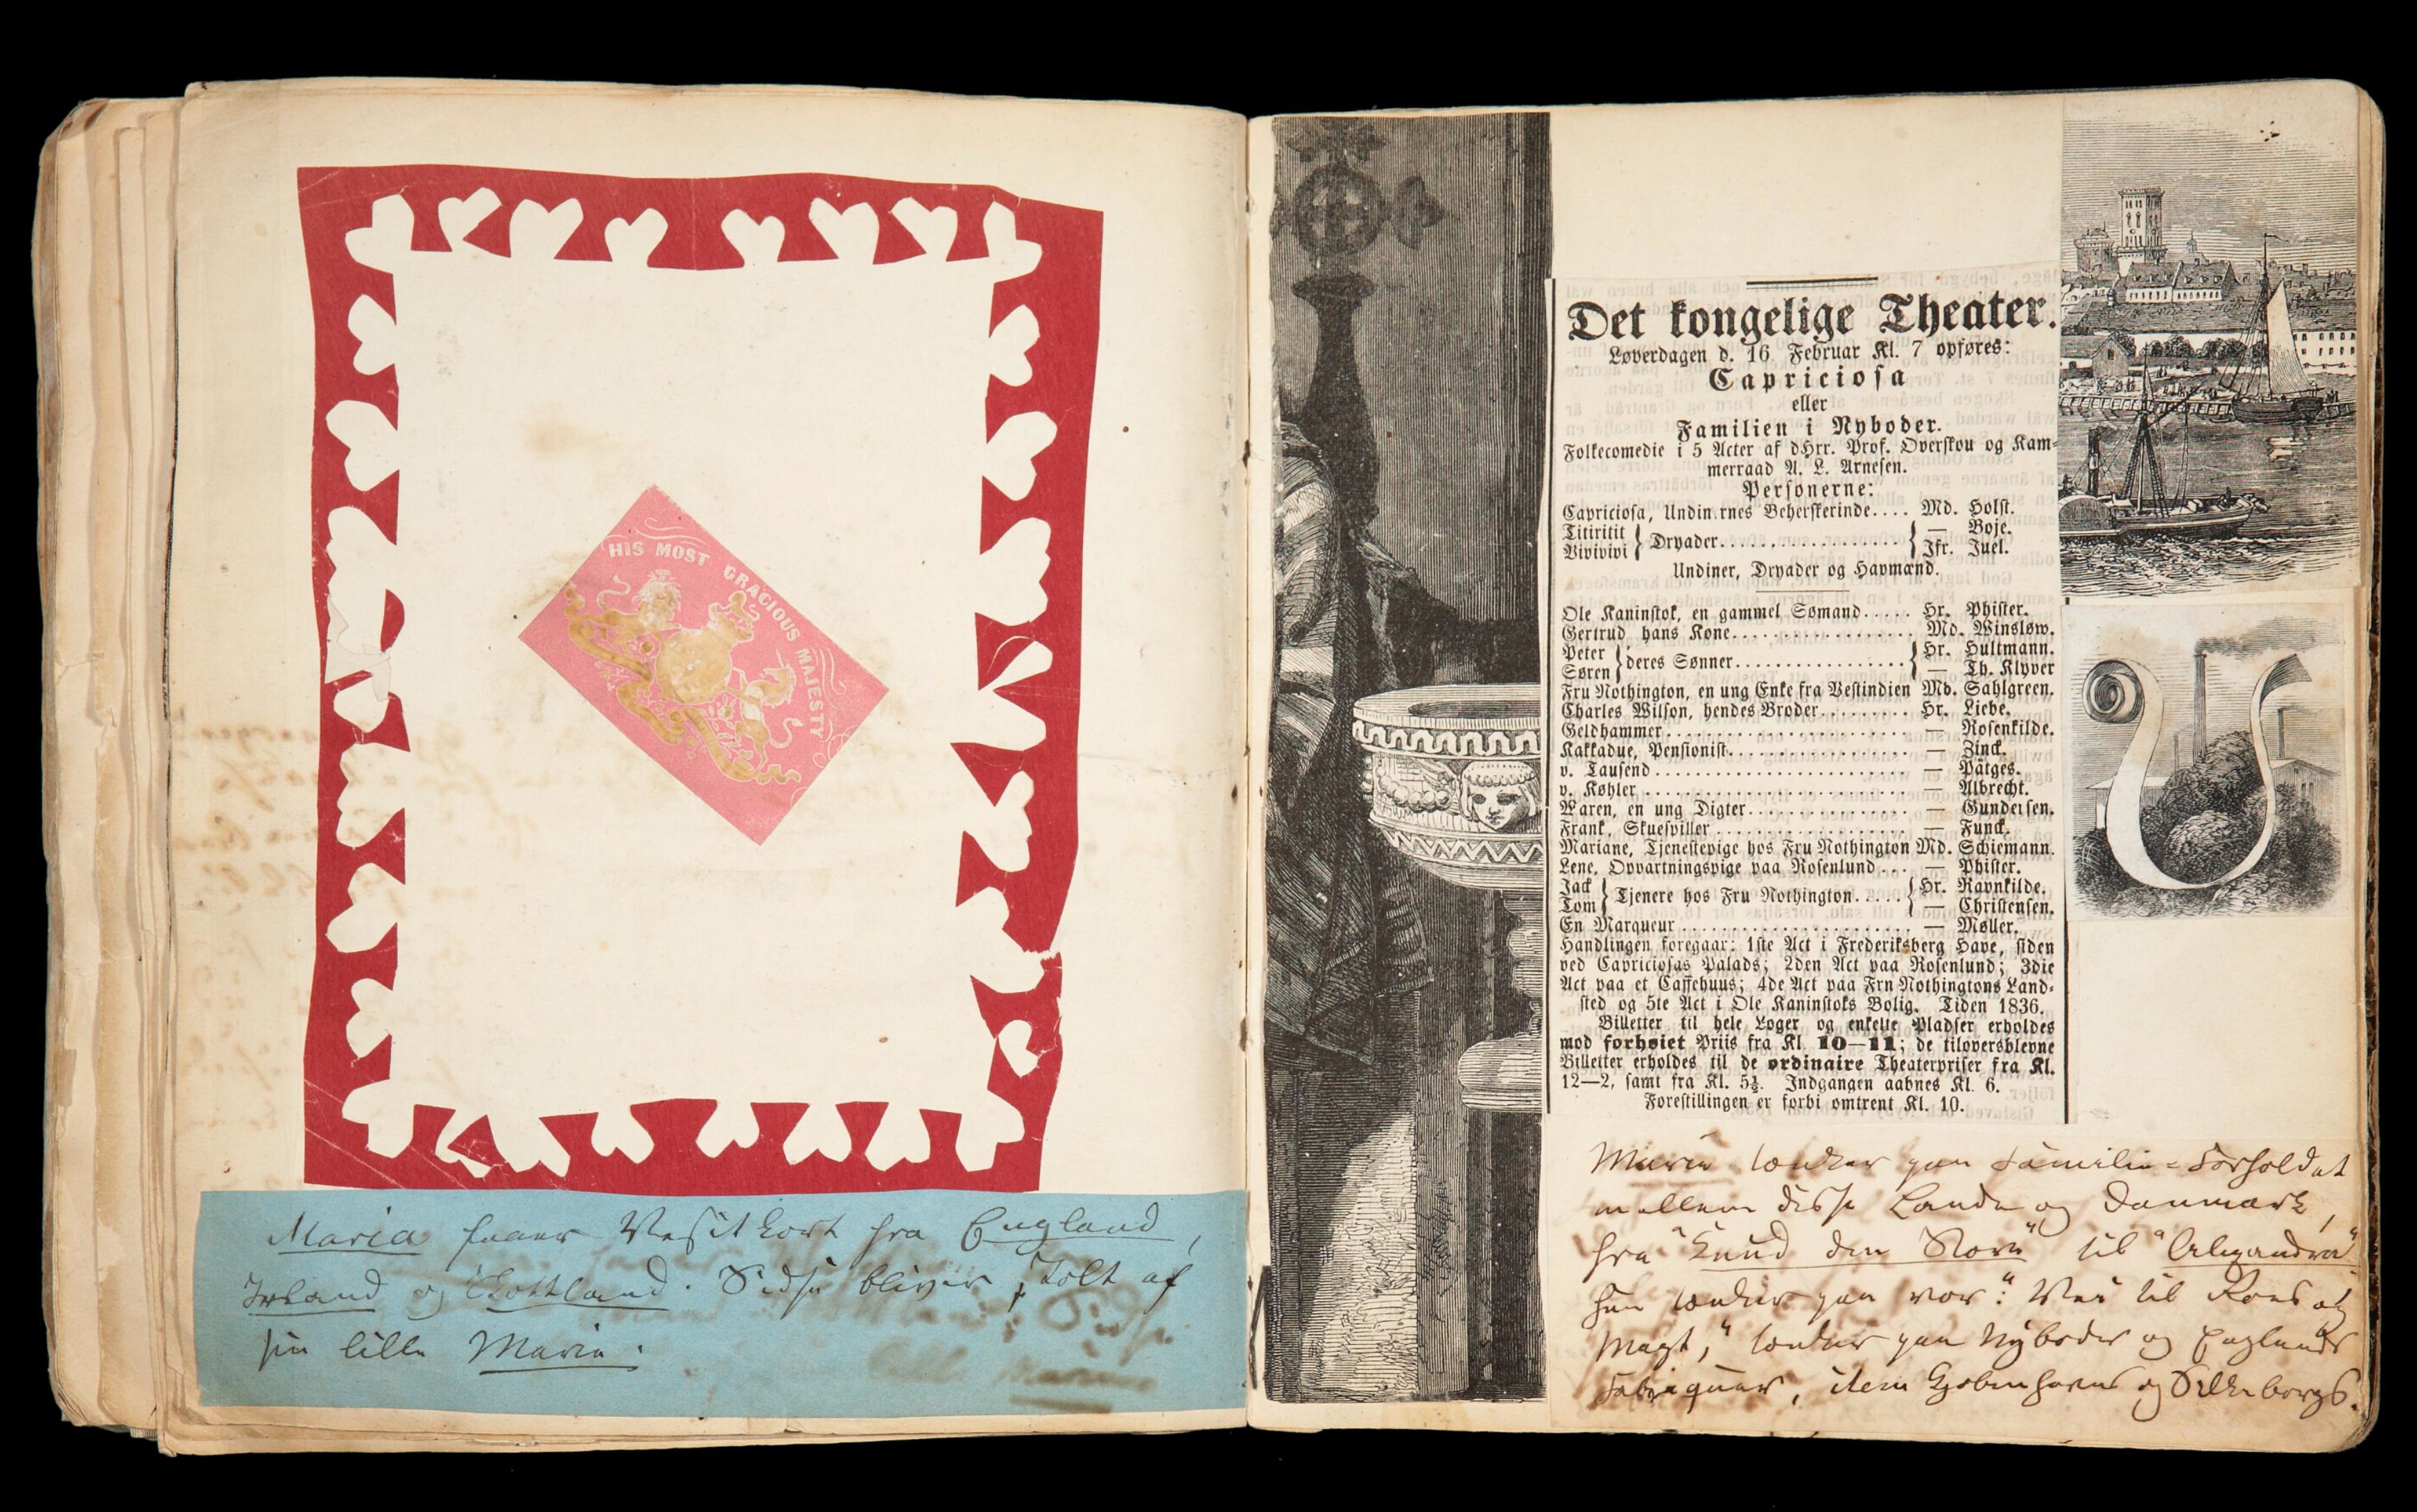 HIS MOST GRACIOUS MAJESTY
Maria faaer Visitkort fra England,
Irland og Skottland. Sidse bliver stolt af
sin lille Maria.
Det kongelige Theater.
Løverdagen d. 16 Februar Kl. 7 opføres:
Capriciosa
eller
Familien i Nyboder.
Folkecomedie i 5 Acter af dHrr. Prof. Overskou og Kam-
merraad A. L. Arnesen.
Personerne:
Capriciosa, Undin.rnes Beherskerinde.... Md. Holst.
Titiritit } Dryader.................... { — Boje.
Vivivivi } { Jfr. Juel.
Undiner, Dryader og Havmænd.
Ole Kaninstok, en gammel Sømand..... Hr. Phister.
Gertrud hans Kone................... Md. Winsløw.
Peter } deres Sønner................. { Hr. Hultmann.
Søren } { — Th. Klyver
Fru Nothington, en ung Enke fra Vestindien Md. Sahlgreen.
Charles Wilson, hendes Broder.......... Hr. Liebe.
Geldhammer.......................... — Rosenkilde.
Kakkadue, Pensionist................... — Zinck.
v. Tausend........................... — Pätges.
v. Køhler ............................ — Albrecht.
Waren, en ung Digter.................. — Gundersen.
Frank, Skuespiller..................... — Funck.
Mariane, Tjenestepige hos Fru Nothington Md. Schiemann.
Lene, Opvartningspige paa Rosenlund... — Phister.
Jack } Tjenere hos Fru Nothington..... { Hr. Ravnkilde.
Tom } { — Christensen.
En Marqueur......................... — Møller.
Handlingen foregaar: 1ste Act i Frederiksberg Have, siden
ved Capriciosas Palads; 2den Act paa Rosenlund; 3die
Act paa et Caffehuus; 4de Act paa Frn Nothingtons Land-
sted og 5te Act i Ole Kaninstoks Bolig. Tiden 1836.
Billetter til hele Loger og enkelte Pladser erholdes
mod forhøiet Priis fra Kl. 10—11; de tiloversblevne
Billetter erholdes til de ordinaire Theaterpriser fra Kl.
12—2, samt fra Kl. 5½. Indgangen aabnes Kl. 6.
Forestillingen er forbi omtrent Kl. 10.
Maria tænker paa Familie=Forholdet
mellem disse Lande og Danmark,
fra "Knud den Store" til "Alexandra"
hun tænker paa vor: "Vei til Roes og
Magt," tænker paa Nyboder og Englands
Fabriquer, item Kjøbenhavns og Silkeborgs.